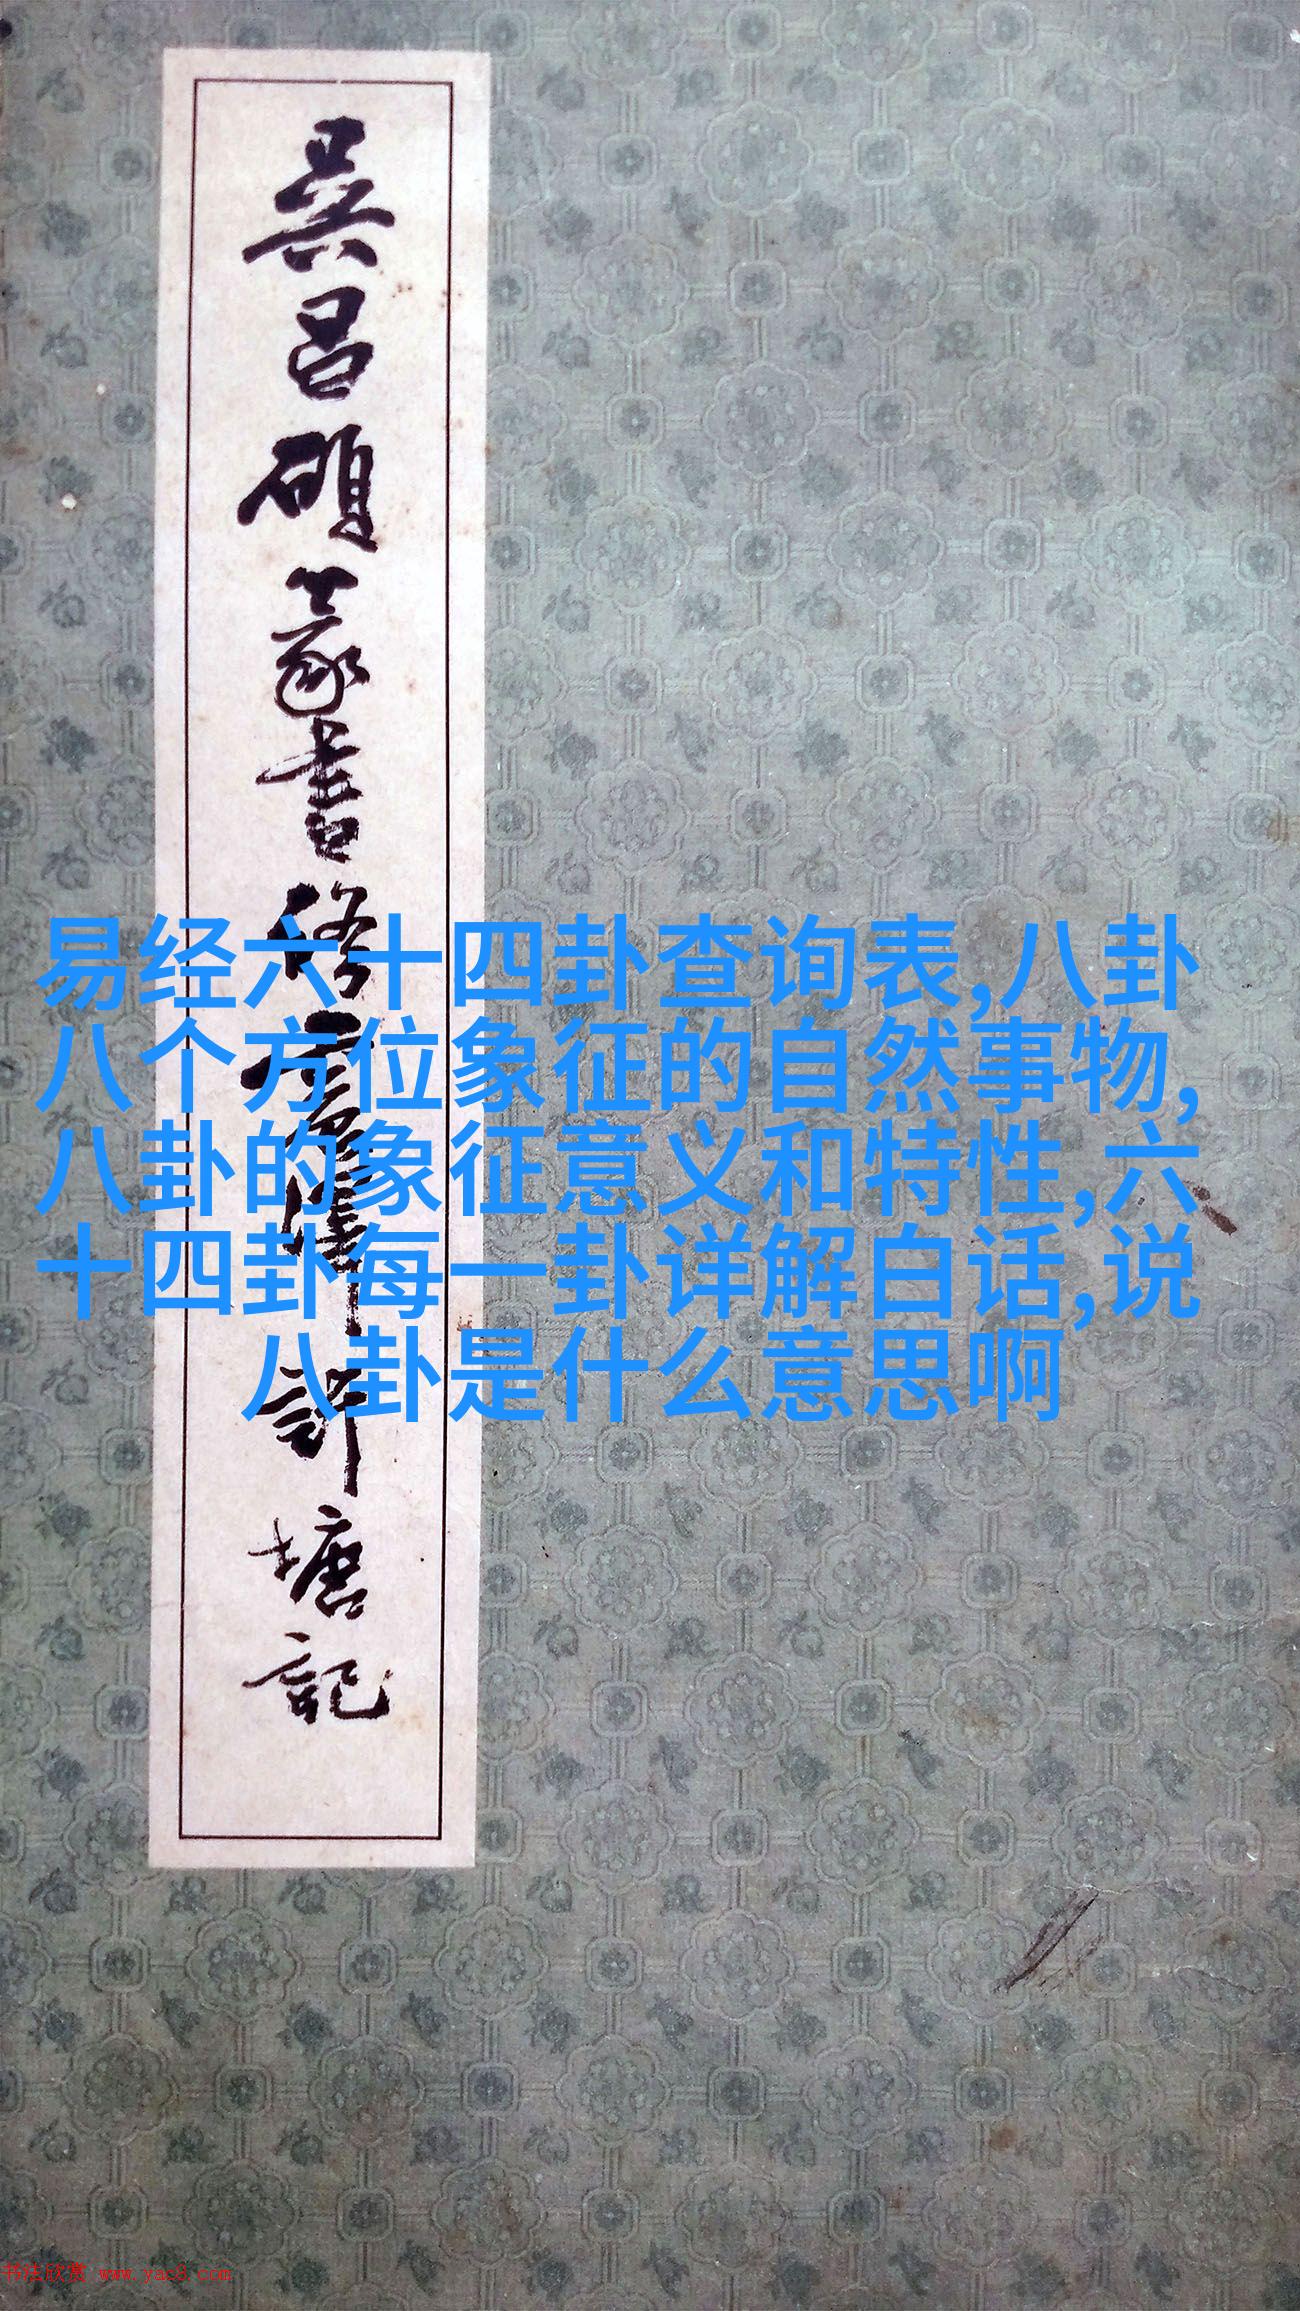 吳昌碩篆書修震澤許塘記
易经六十四卦查询表,八卦
八个方位象征的自然事物,
八卦的象征意义和特性,六
十四卦每一卦详解白话,说
八卦是什么意思啊
书法欣赏 www.yac8.com